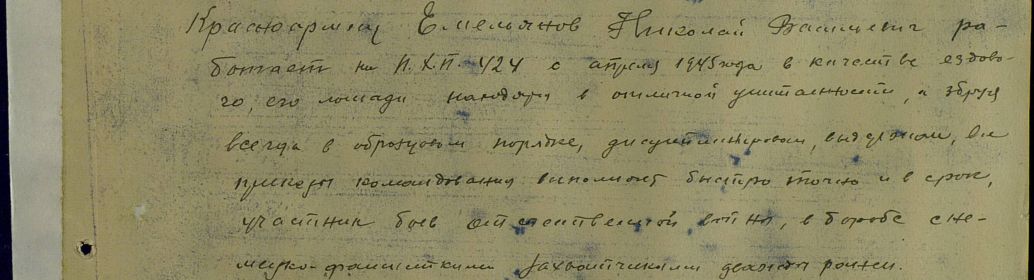 Красноармеец Емельянов Николай Васильевич ра-
ботает на П.Х.П. 424 с апреля 1945 года в качестве ездово-
го, его лошади находятся в отличной упитанности, а збруя
всегда в образцовом порядке, дисциплинирован, выдержан, все
приказы командования выполняет быстро точно и в срок,
участник боев отечественной войны, в борьбе с не-
мецко-фашисткими захватчиками дважды ранен.